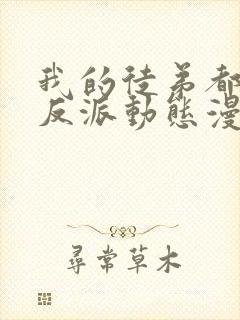 我的徒弟都
反派動態漫
尋常草木